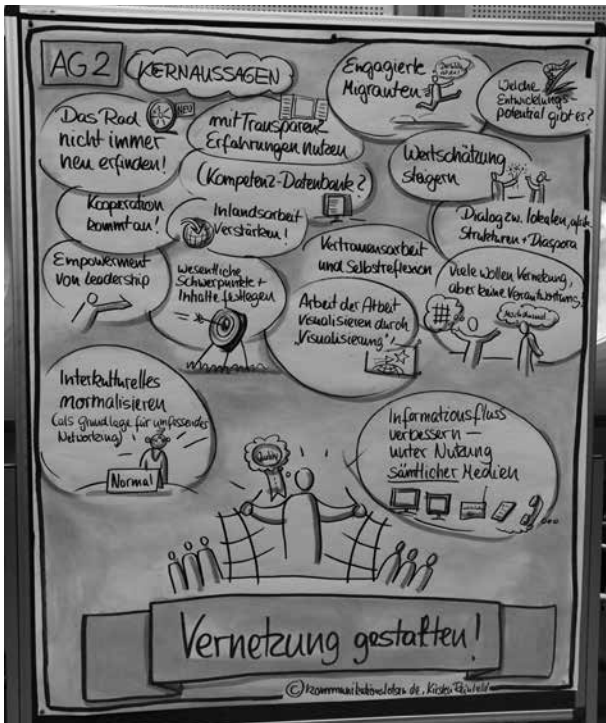 AG 2
KERNAUSSAGEN
Das Rad
NEU
nicht immer
neu erfinden!
mit Transparenz
Erfahrungen nutzen
Engagierte
Migranten
Welche
Entwicklungs-
potential gibt es?
(Kompetenz-Datenbank?)
Wertschätzung
steigern
Kooperation
kommt an!
Inlandsarbeit
Verstärken!
Dialog zw. lokalen,
Strukturen + Diaspora
Empowerment
von Leadership
wesentliche
Schwerpunkte +
Inhalte festlegen
Vertrauensarbeit
und Selbstreflexion
Viele wollen Vernetzung,
aber keine Verantwortung!
#
Arbeit der Arbeit
Visualisieren durch
„Visualisierung“!
Interkulturelles
normalisieren
(als Grundlage für umfassendes
Networking)
Normal
Informationsfluss
verbessern –
unter Nutzung
sämtlicher Medien
Vernetzung gestalten!
© kommunikationslotsen.de, Kirsten